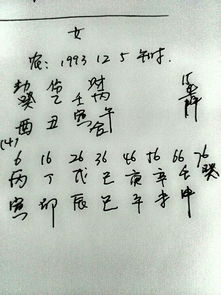 女
农: 1993 12 5 午时.
劫 伤 财
癸 乙 壬 丙
酉 丑 寅 午
(4)
6 16 26 36 46 56 66 76
丙 丁 戊 己 庚 辛 壬 癸
寅 卯 辰 巳 午 未 申